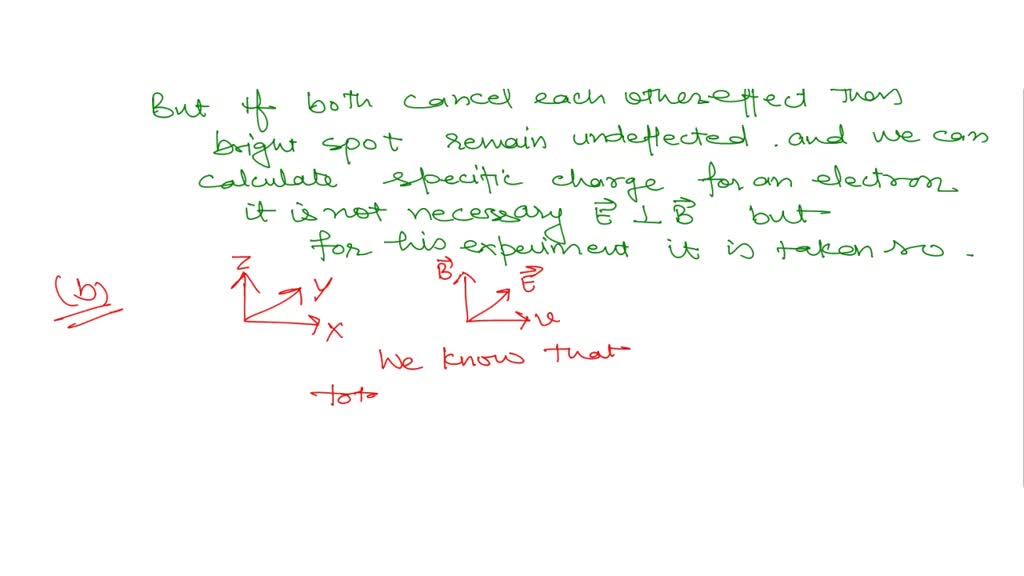 But if both cancel each others effect then
bright spot remain undeflected . and we can
calculate specific charge for an electron
it is not necessary E⃗ ⊥ B⃗ but
for his experiment it is taken so .
(b)
Z
Y
X
B⃗
E⃗
v
We know that
tot